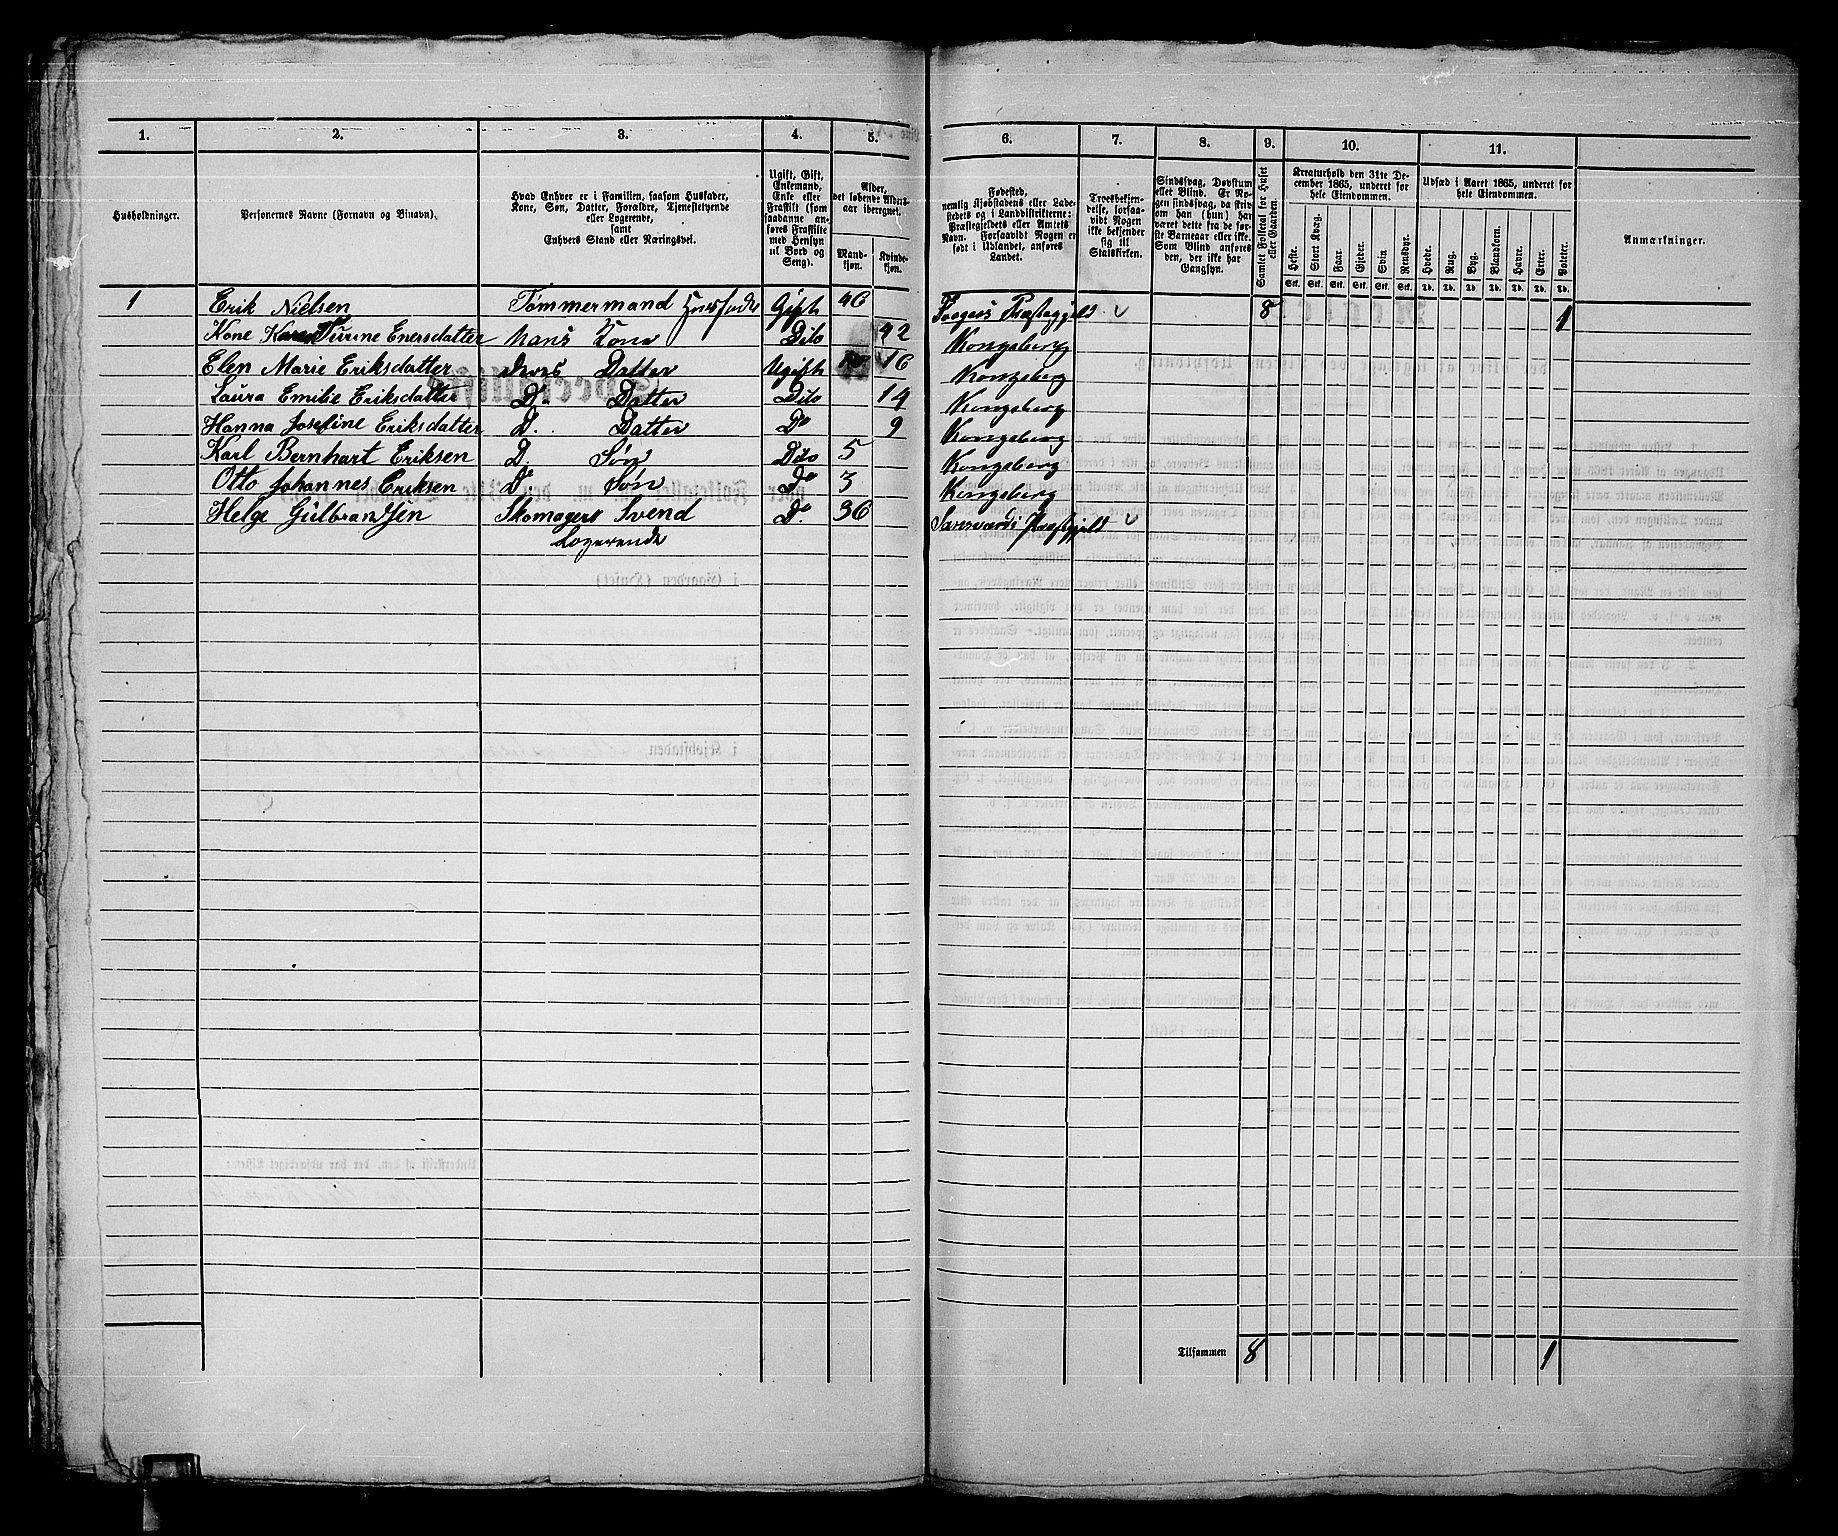 1. 2. 3. 4. 5. 6. 7. 8. 9. 10. 11.
Husholdninger.
Personernes Navne (Fornavn og Binavn).
Hvad Enhver er i Familien, saasom Husfader,
Kone, Søn, Datter, Forældre, Tjenestetyende
eller Logerende,
samt
Enhvers Stand eller Næringsvei.
Ugift, Gift,
Enkemand,
Enke eller
Fraskilt (som
saadanne an-
føres Fraskilte
med Hensyn
til Bord og
Seng).
Alder,
det løbende Alders-
aar iberegnet.
Mand-
kjøn.
Kvinde-
kjøn.
Fødested,
nemlig Kjøbstadens eller Lade-
stedets og i Landdistrikterne:
Præstegjeldets eller Amtets
Navn. Forsaavidt Nogen er
født i Udlandet, anføres
Landet.
Troesbekjen-
delse, forsaa-
vidt Nogen
ikke bekjender
sig til
Statskirken.
Sindssvag, Døvstum
eller Blind. Er No-
gen sindssvag, da skriv
om han (hun) har
været dette fra de før-
ste Barneaar eller ikke.
Som Blind anføres
den, der ikke har
Gangsyn.
Samlet Folketal for Huset
eller Gaarden.
Kreaturhold den 31te De-
cember 1865, underet for
hele Eiendommen.
Heste. Stort Kvæg. Faar. Gjeder. Svin. Rensdyr.
Stk. Stk. Stk. Stk. Stk. Stk.
Udsæd i Aaret 1865, underet for
hele Eiendommen.
Hvede. Rug. Byg. Blandkorn. Havre. Erter. Poteter.
Td. Td. Td. Td. Td. Td. Td.
Anmærkninger.
1 Erik Nielsen Tømmermand Husfader Gift 46 Præstegjeld 8 1
Kone Turine Enersdatter Hans Kone Dito 42 Kongsberg
Elen Marie Eriksdatter deres Datter Ugift 16 Kongsberg
Laura Emilie Eriksdatter D. Datter Dito 14 Kongsberg
Hanna Josefine Eriksdatter D. Datter Do 9 Kongsberg
Karl Bernhart Eriksen D. Søn Dito 5 Kongsberg
Otto Johannes Eriksen D. Søn Do 3 Kongsberg
Helge Gulbrandsen Skomager Svend Do. 36 Præstegjeld
Logerende
Tilsammen 8 1